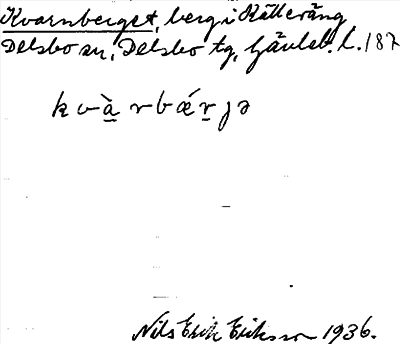 Kvarnberget, berg i Källeräng
Delsbo sn, Delsbo tg, Gävleb. l. 187
kvà̱rbǽṟjə
Nils Erik Eriksson 1936.